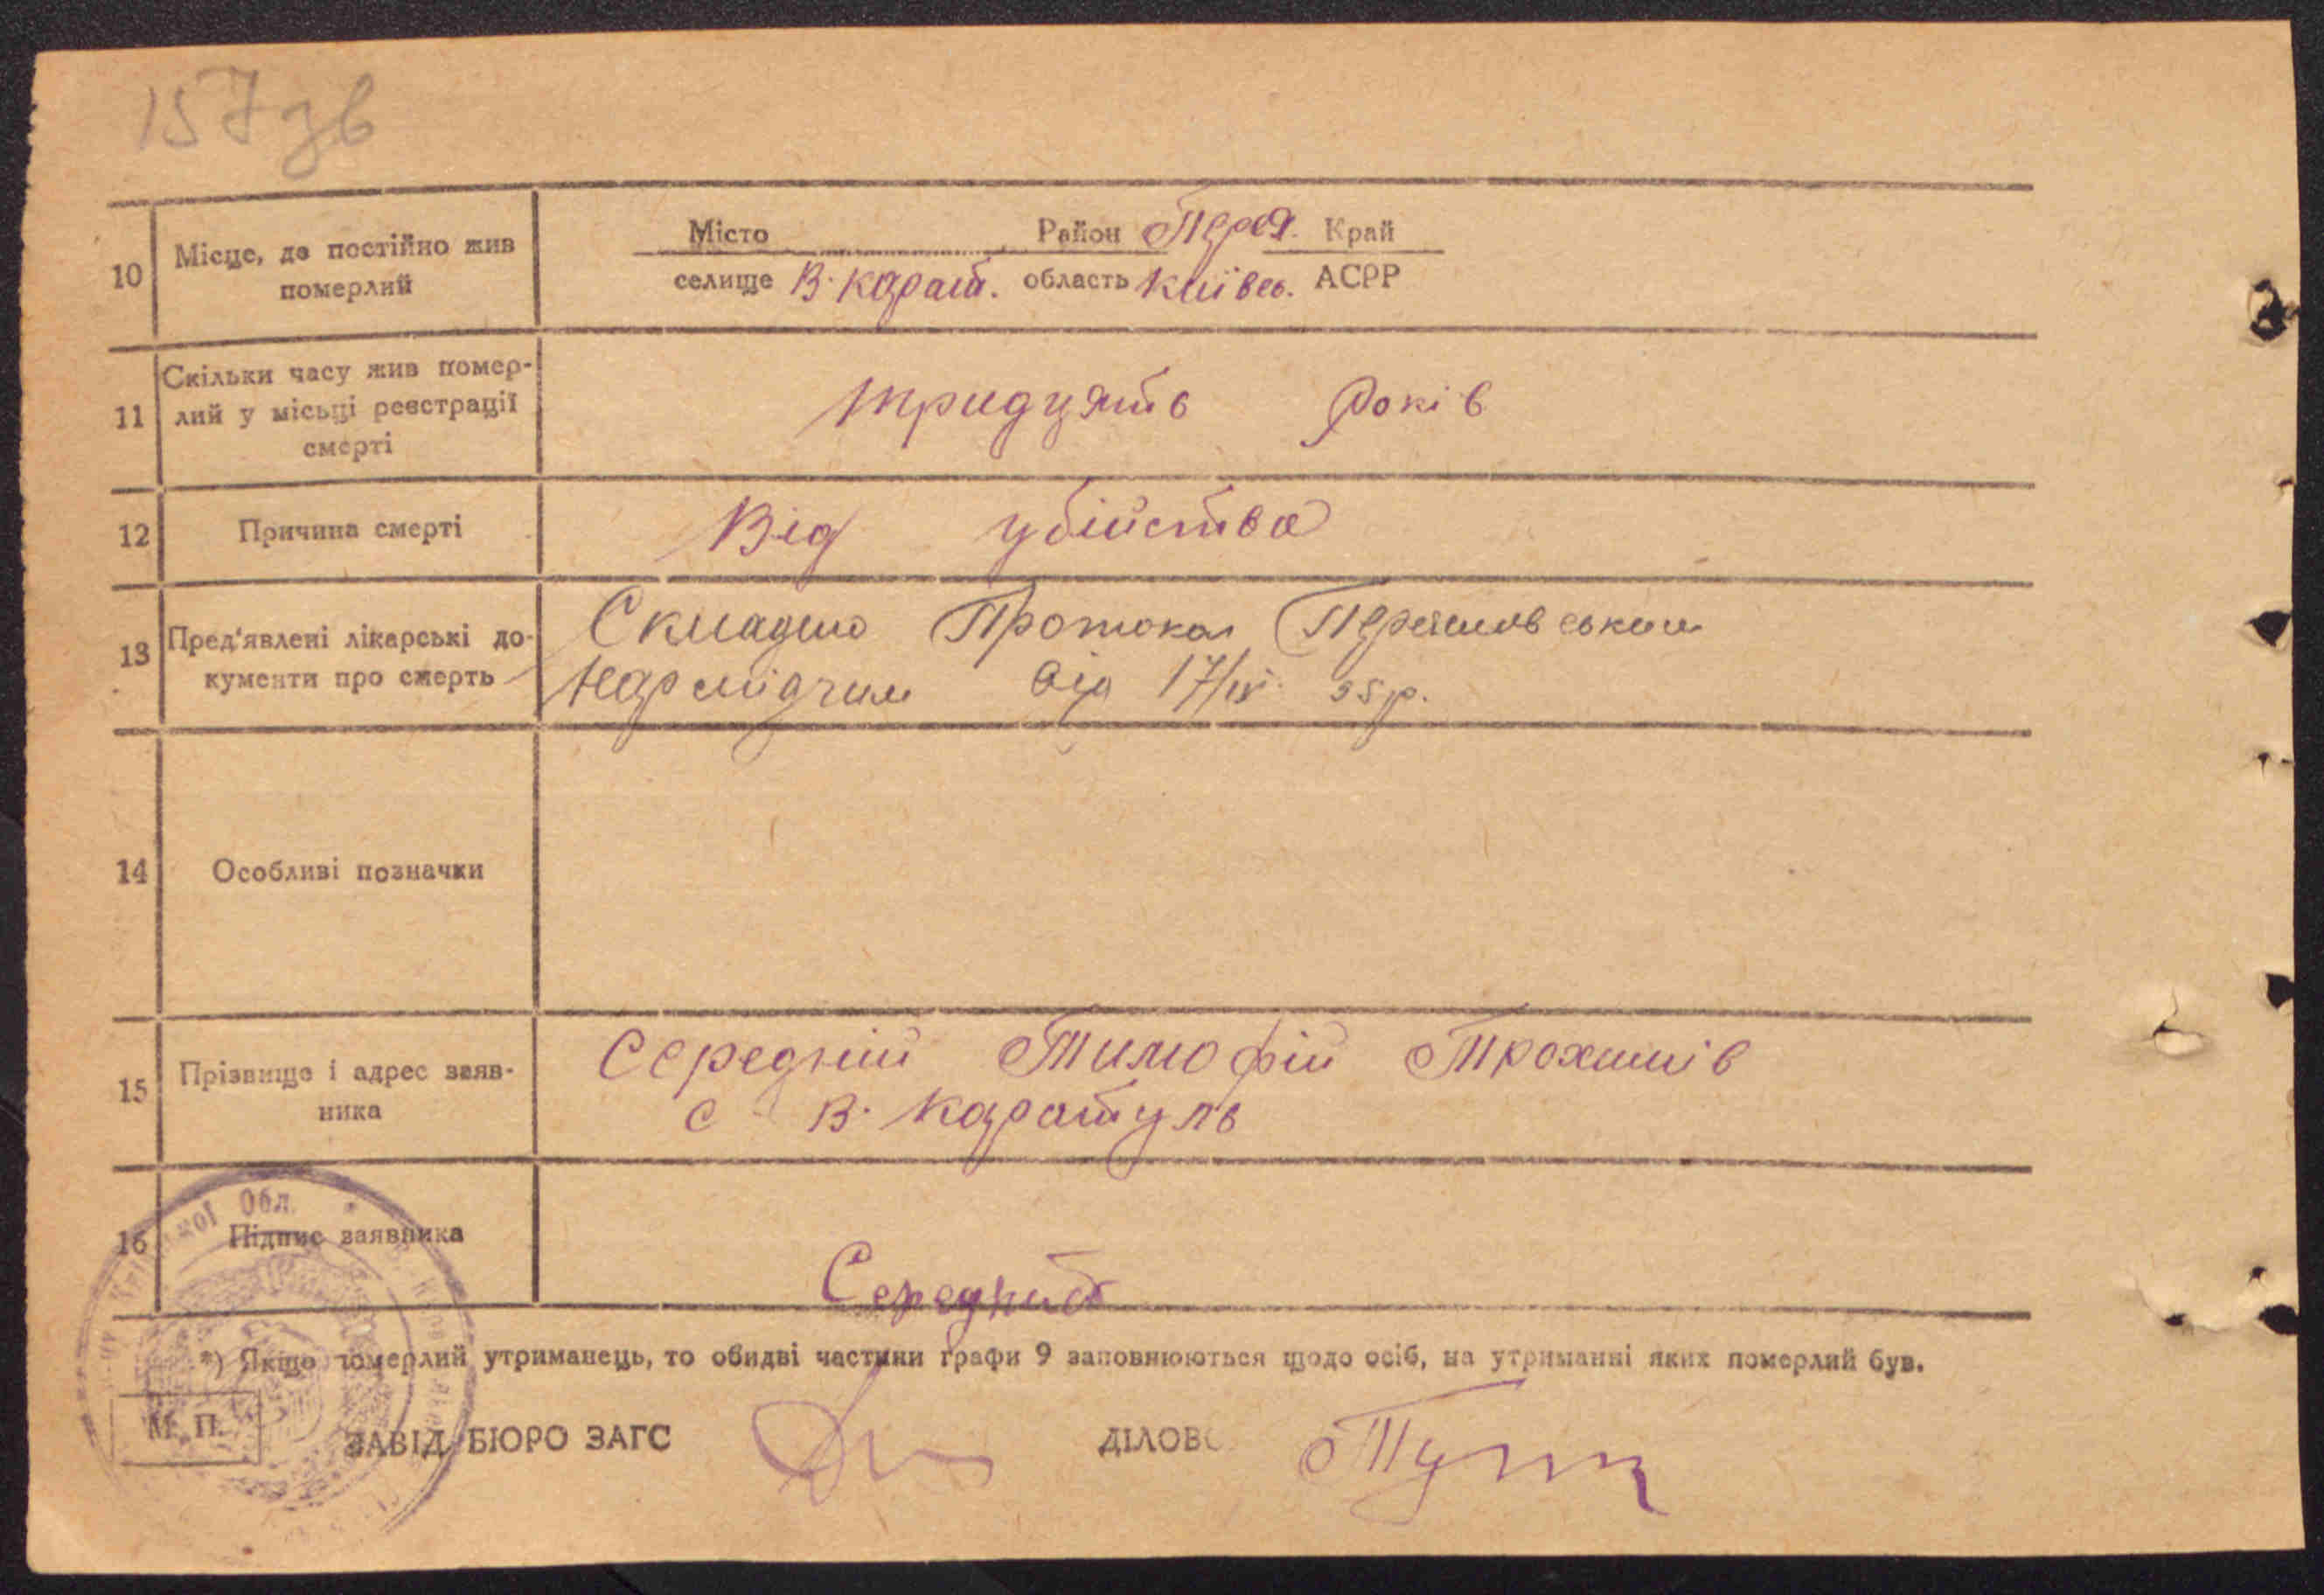 157 зв
Місто Район Перея. Край
10 Місце, де постійно жив померлий
селище В. карат. область київсь. АСРР
11 Скільки часу жив помер-
лий у місьці реєстрації
смерті
тридцять років
12 Причина смерті Від убійства
13 Пред'явлені лікарські до-
кументи про смерть
Складено Протокол
від 17/IV 35 р.
14 Особливі позначки
15 Прізвище і адрес заяв-
ника
Середній Тимофій Трохимів
с В. каратуль
Обл.
16 Підпис заявника
Середний
*) Якщо померлий утриманець, то обидві частини графи 9 заповнюються щодо осіб, на утриманні яких померлий був.
М. П.
ЗАВІД БЮРО ЗАГС ДІЛОВ